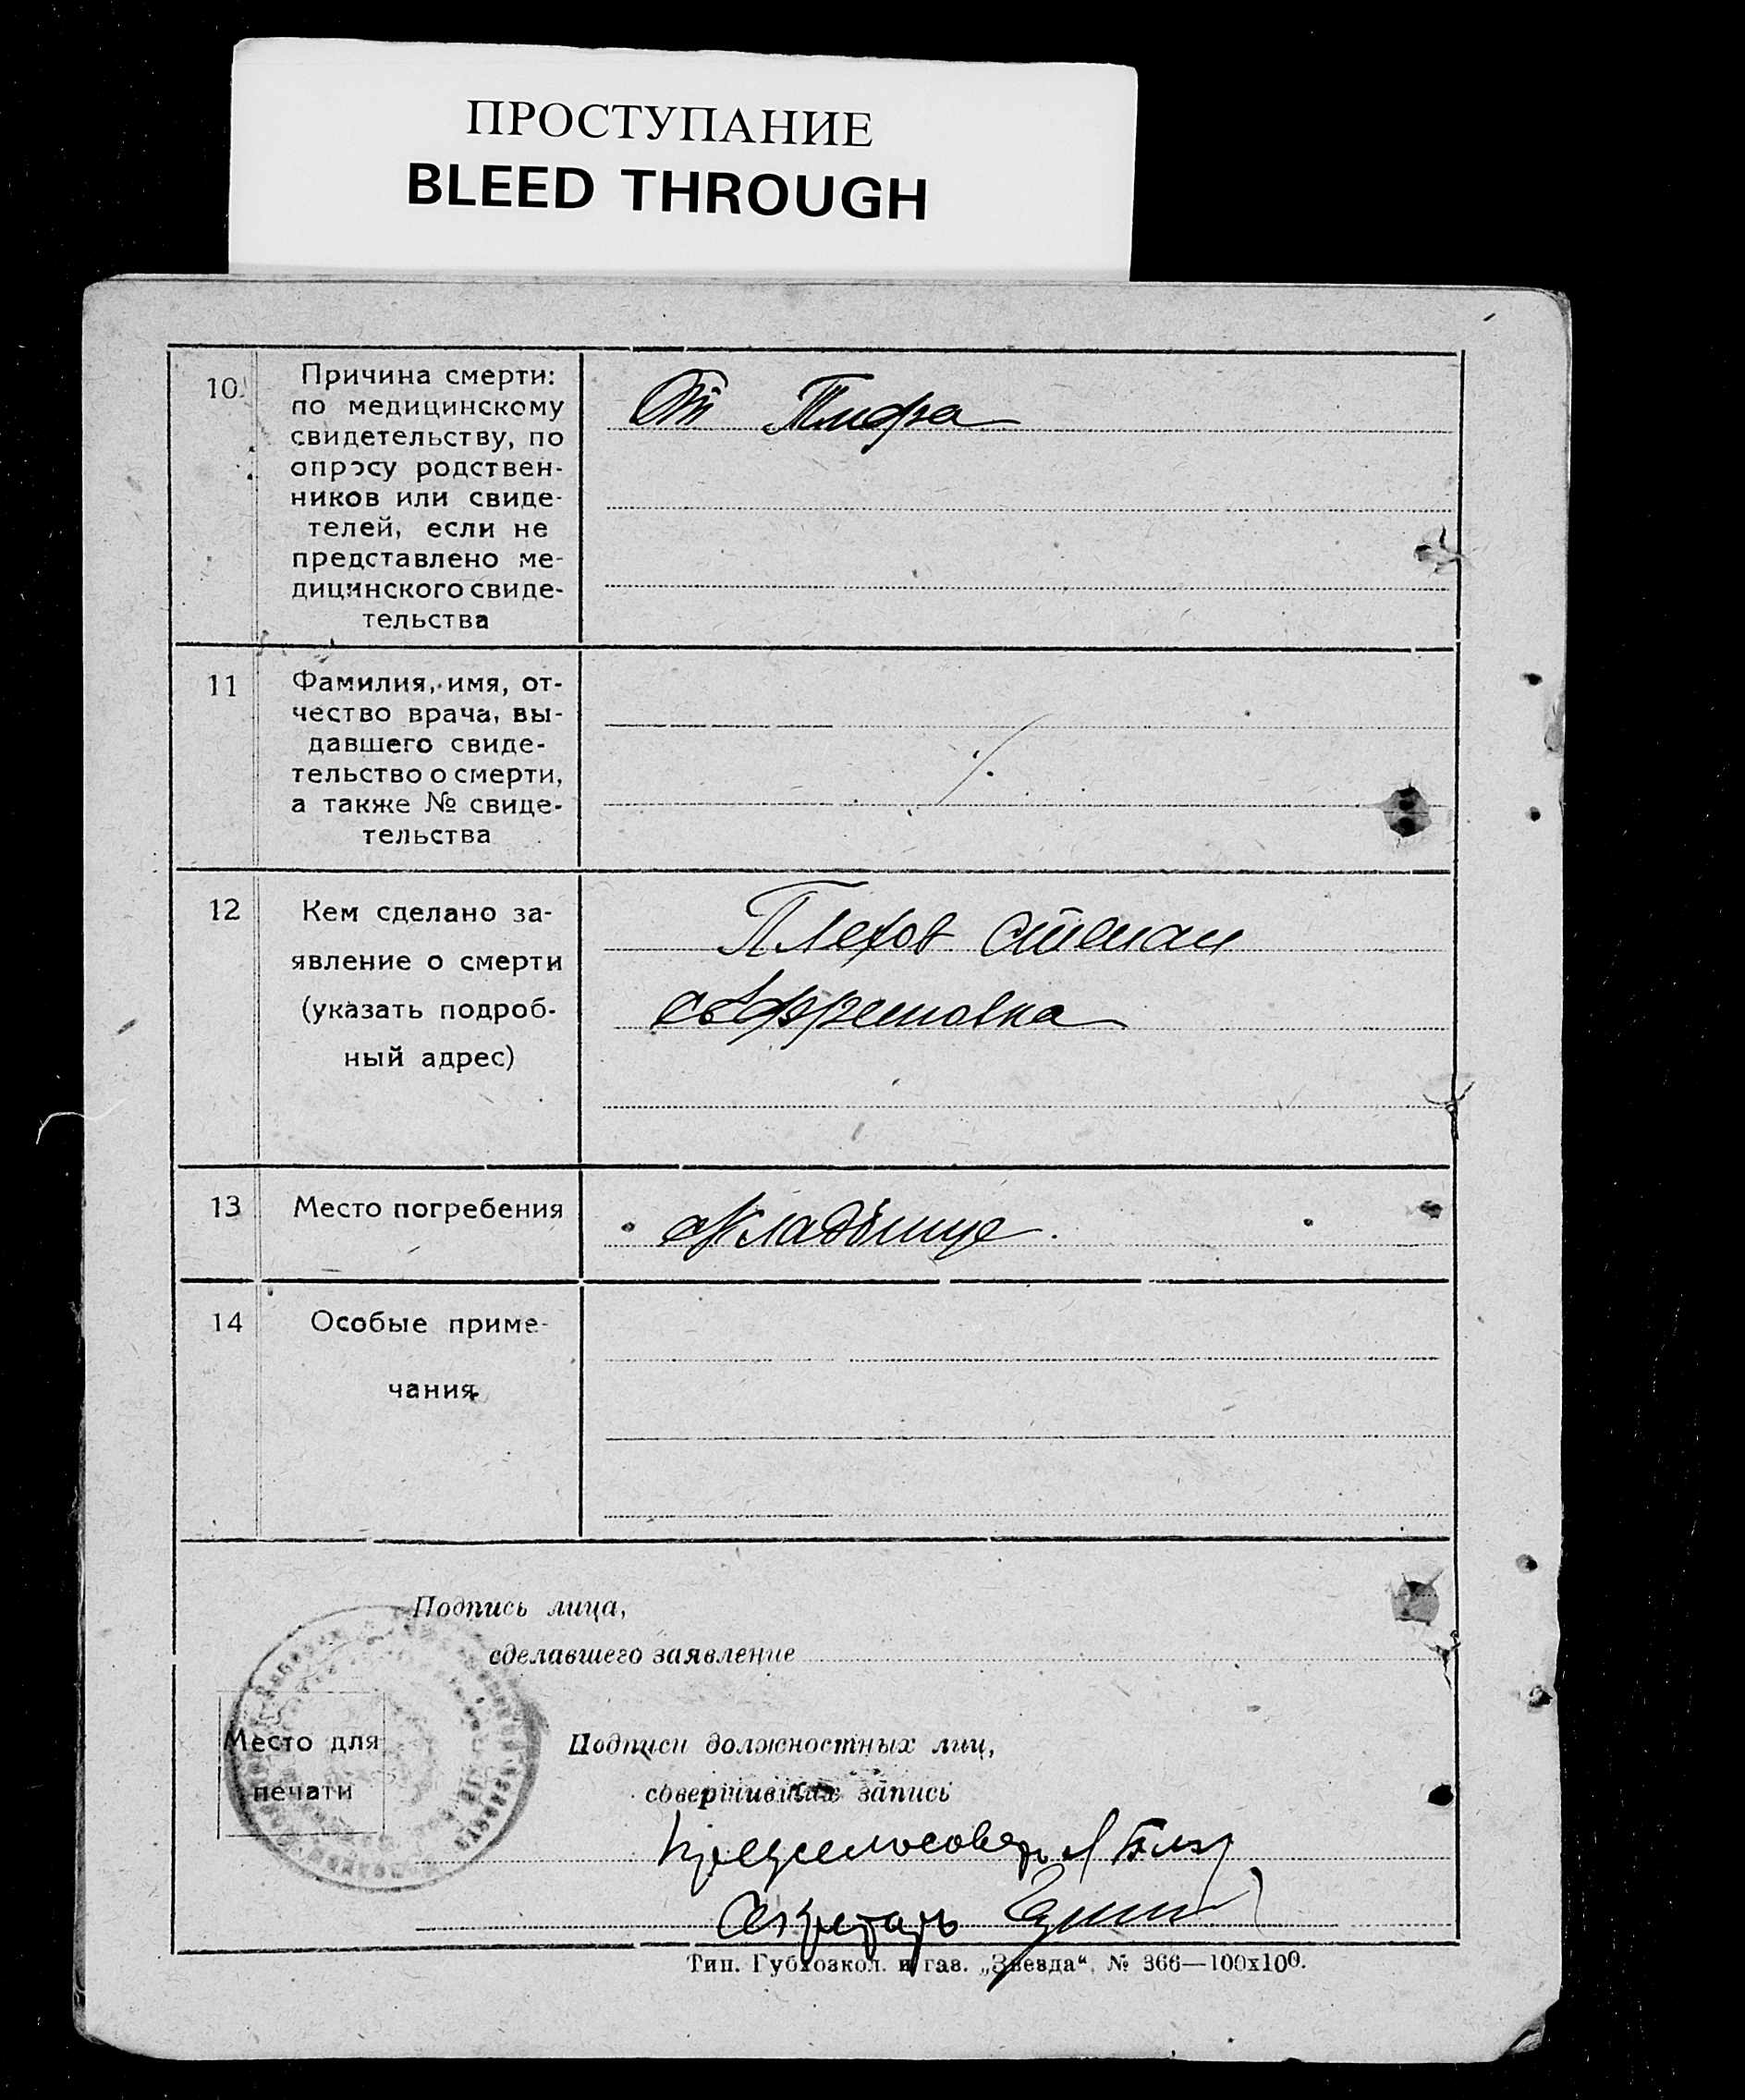 ПРОСТУПАНИЕ
BLEED THROUGH
10.
Причина смерти:
по медицинскому
свидетельству, по
опросу родствен-
ников или свиде-
телей, если не
представлено ме-
дицинского свиде-
тельства
От Тифа
11
Фамилия, имя, от-
чество врача, вы-
давшего свиде-
тельство о смерти,
а также № свиде-
тельства
12
Кем сделано за-
явление о смерти
(указать подроб-
ный адрес)
Плехов Степан
13
Место погребения
Кладбище.
14
Особые приме-
чания
Подпись лица,
сделавшего заявление
Место для
печати
Подписи должностных лиц,
совершивших запись
Предсельсовета
Секретарь
Тип. Губхозкол. и газ. „Звезда“. № 366—100х100.